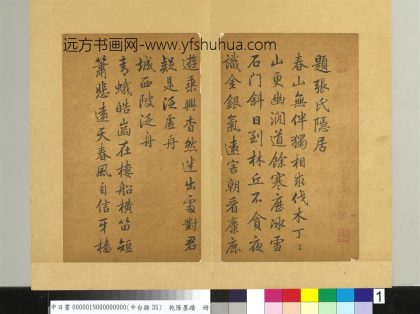 远方书画网-www.yfshuhua.com
題張氏隱居
春山無伴獨相求伐木丁〻
山更幽澗道餘寒歷冰雪
石門斜日到林丘不貪夜
識金銀氣遠害朝看麋鹿
遊乗興杳然迷出處對君
疑是泛虛舟
城西陂泛舟
青蛾皓齒在樓船橫笛短
簫悲遠天春風自信牙檣
000001N000000000(中台雜35) 乾隆墨蹟 冊
1